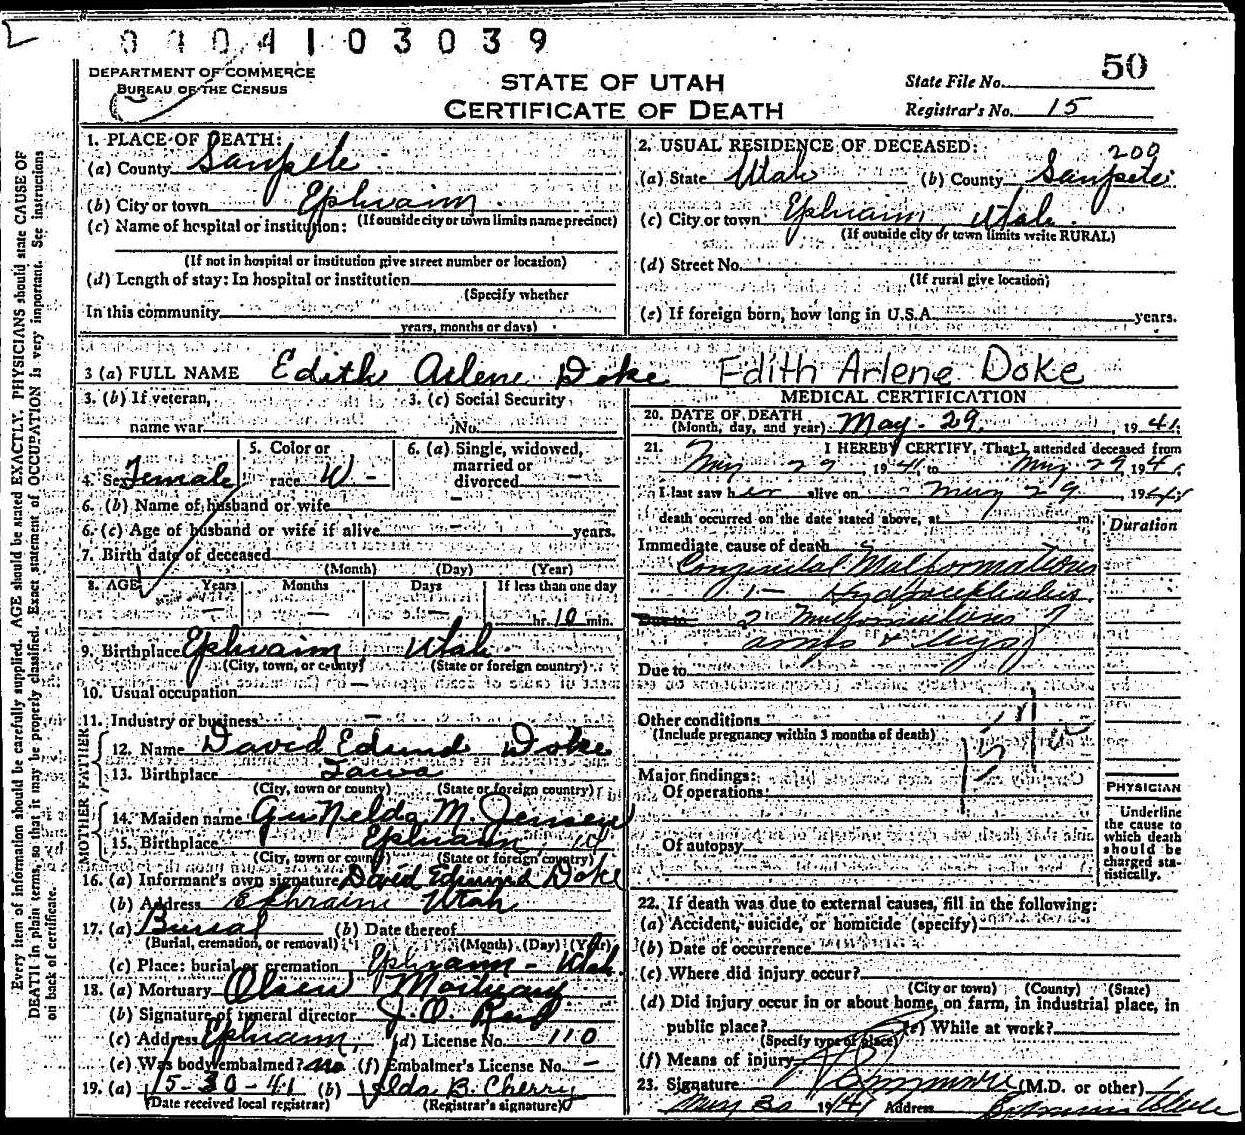 0 4 1 0 3 0 3 9
DEPARTMENT OF COMMERCE
BUREAU OF THE CENSUS
STATE OF UTAH
CERTIFICATE OF DEATH
State File No. 50
Registrar's No. 15
Every item of information should be carefully supplied. AGE should be stated EXACTLY. PHYSICIANS should state CAUSE OF
DEATH in plain terms, so that it may be properly classified. Exact statement of OCCUPATION is very important. See instructions
on back of certificate.
1. PLACE OF DEATH:
(a) County Sanpete
(b) City or town Ephraim
(If outside city or town limits name precinct)
(c) Name of hospital or institution:
(If not in hospital or institution give street number or location)
(d) Length of stay: In hospital or institution
(Specify whether
In this community
years, months or days)
2. USUAL RESIDENCE OF DECEASED:
200
(a) State Utah (b) County Sanpete
(c) City or town Ephraim Utah
(If outside city or town limits write RURAL)
(d) Street No.
(If rural give location)
(e) If foreign born, how long in U.S.A. years.
3 (a) FULL NAME Edith Arlene Doke Edith Arlene Doke
3. (b) If veteran, 3. (c) Social Security
name war No.
4. Sex Female
5. Color or
race W. -
6. (a) Single, widowed,
married or
divorced -
6. (b) Name of husband or wife -
6. (c) Age of husband or wife if alive years.
7. Birth date of deceased
(Month) (Day) (Year)
8. AGE Years Months Days If less than one day
- - - hr. 10 min.
9. Birthplace Ephraim Utah
(City, town, or county) (State or foreign country)
10. Usual occupation
11. Industry or business -
FATHER
12. Name David Edmund Doke
13. Birthplace Iowa
(City, town or county) (State or foreign country)
MOTHER
14. Maiden name M. Jensen
15. Birthplace Ephraim
(City, town or county) (State or foreign country)
16. (a) Informant's own signature David Edmund Doke
(b) Address Ephraim Utah
17. (a) Burial (b) Date thereof
(Burial, cremation, or removal) (Month) (Day) (Year)
(c) Place: burial or cremation Ephraim - Utah
18. (a) Mortuary Olsen Mortuary
(b) Signature of funeral director J. O.
(c) Address Ephraim, (d) License No. 110
(e) Was body embalmed? no (f) Embalmer's License No. -
19. (a) 5-30-41 (b) Ilda B. Cherry
(Date received local registrar) (Registrar's signature)
MEDICAL CERTIFICATION
20. DATE OF DEATH
(Month, day, and year) May - 29. 1941.
21. I HEREBY CERTIFY, That I attended deceased from
May 29 1941 to May 29 1941
I last saw her alive on May 29 1941
death occurred on the date stated above, at m.
Duration
Immediate cause of death
Congenital Malformations
1 - Hydrocephalus
Due to 2 Malformations of
arms & legs
Due to
Other conditions
(Include pregnancy within 3 months of death)
Major findings:
Of operations
Of autopsy
PHYSICIAN
Underline
the cause to
which death
should be
charged sta-
tistically.
22. If death was due to external causes, fill in the following:
(a) Accident, suicide, or homicide (specify)
(b) Date of occurrence
(c) Where did injury occur?
(City or town) (County) (State)
(d) Did injury occur in or about home, on farm, in industrial place, in
public place? (e) While at work?
(Specify type of place)
(f) Means of injury
23. Signature (M.D. or other)
May 30 1941 Address Ephraim Utah